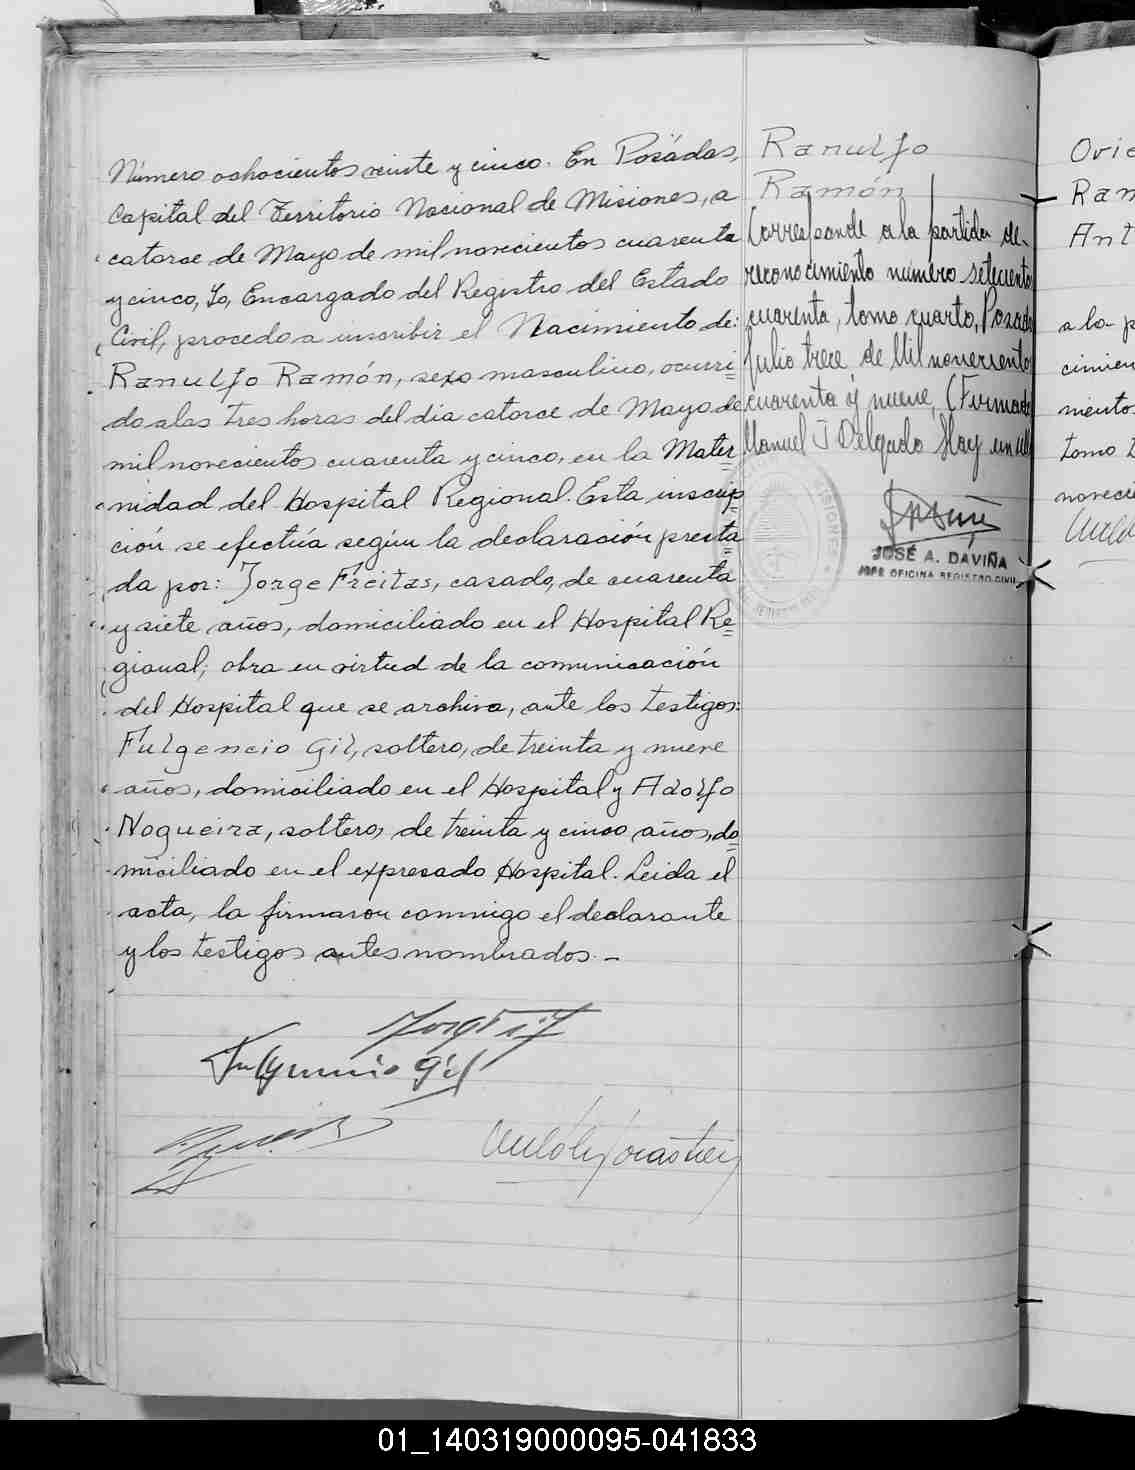 Número ochocientos veinte y cinco. En Posadas,
Capital del Territorio Nacional de Misiones, a
catorce de Mayo de mil novecientos cuarenta
y cinco, Yo, Encargado del Registro del Estado
Civil, procedo a inscribir el Nacimiento de:
Ranulfo Ramón, sexo masculino, ocurri=
do a las tres horas del dia catorce de Mayo de
mil novecientos cuarenta y cinco, en la Mater=
nidad del Hospital Regional. Esta inscrip=
ción se efectúa según la declaración presta=
da por: Jorge Freitas, casado, de cuarenta
y siete años, domiciliado en el Hospital Re=
gional; obra en virtud de la comunicación
del Hospital que se archiva, ante los testigos:
Fulgencio Gil, soltero, de treinta y nueve
años, domiciliado en el Hospital y Adolfo
Nogueira, soltero, de treinta y cinco años, do=
miciliado en el expresado Hospital. Leida el
acta, la firmaron conmigo el declarante
y los testigos antes nombrados.-
Fulgencio Gil
Ranulfo
Ramón
Corresponde a la partida de-
reconocimiento número setecientos
cuarenta, tomo cuarto, Posadas
Julio trece de Mil novecientos
cuarenta y nueve, (Firmado
Manuel J Delgado Hay un sello
MISIONES
JOSÉ A. DAVIÑA
JEFE OFICINA REGISTRO CIVIL
Ovie
Ram
Ant
a la p
cimien
miento
tomo
novecie
01_140319000095-041833